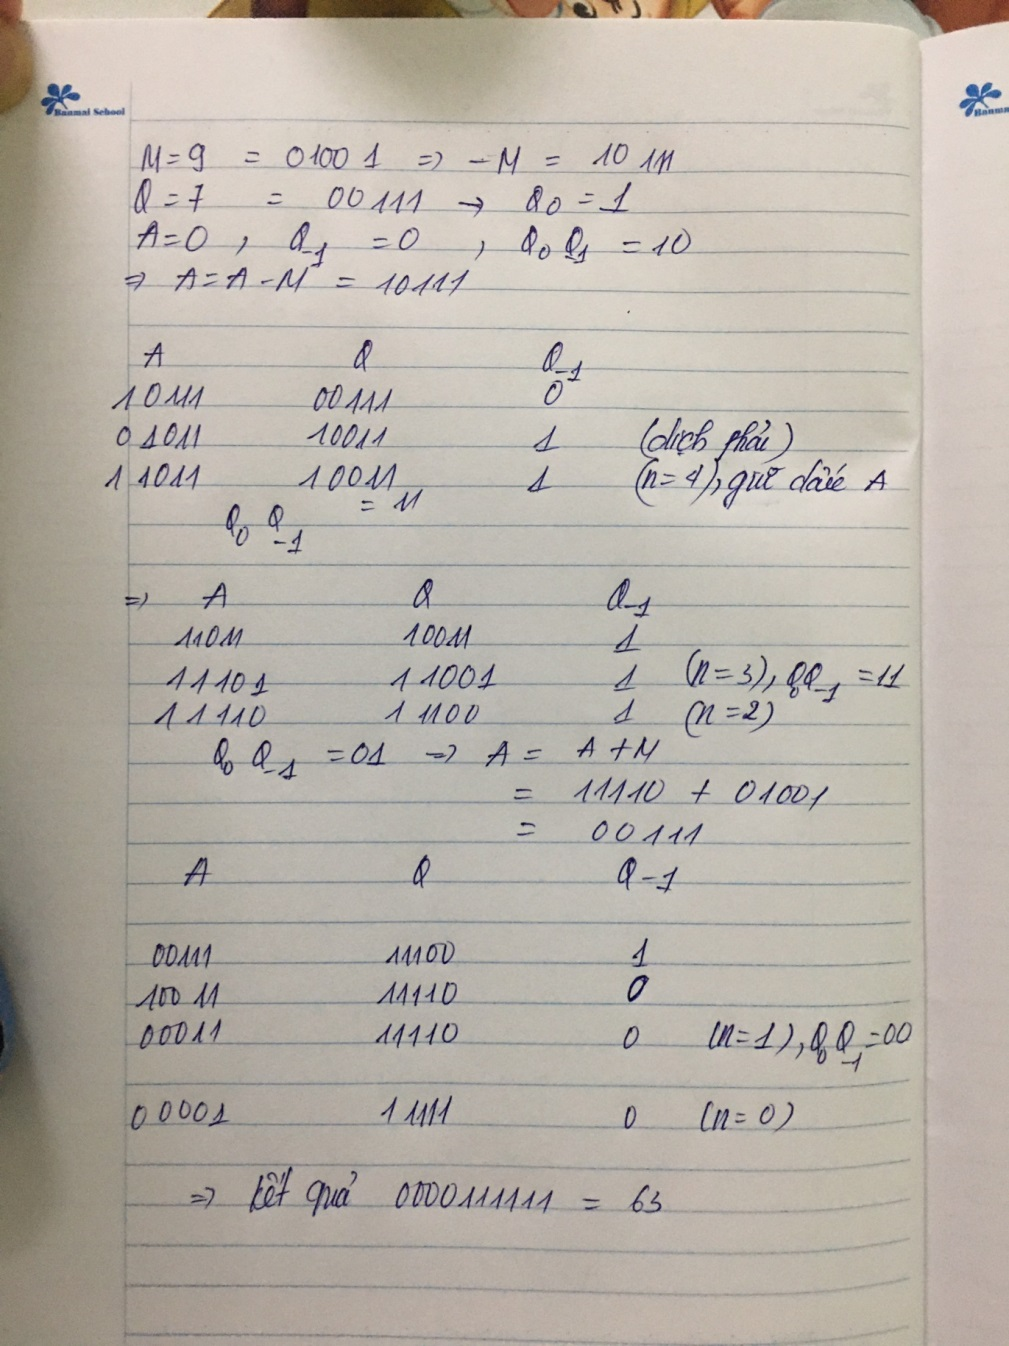 Banmai School
Banma
M = 9 = 01001 => -M = 10111
Q = 7 = 00111 → Q0 = 1
A = 0 , Q-1 = 0 , Q0 Q-1 = 10
=> A = A - M = 10111
A Q Q-1
10111 00111 0
01011 10011 1 (dịch phải)
11011 10011 1 (n=4), giữ A
Q0 Q-1 = 11
=> A Q Q-1
11011 10011 1
11101 11001 1 (n=3), Q0Q-1 = 11
11110 11100 1 (n=2)
Q0 Q-1 = 01 => A = A + M
= 11110 + 01001
= 00111
A Q Q-1
00111 11100 1
10011 11110 0
00011 11110 0 (n=1), Q0Q-1 = 00
00001 11111 0 (n=0)
=> kết quả 0000111111 = 63